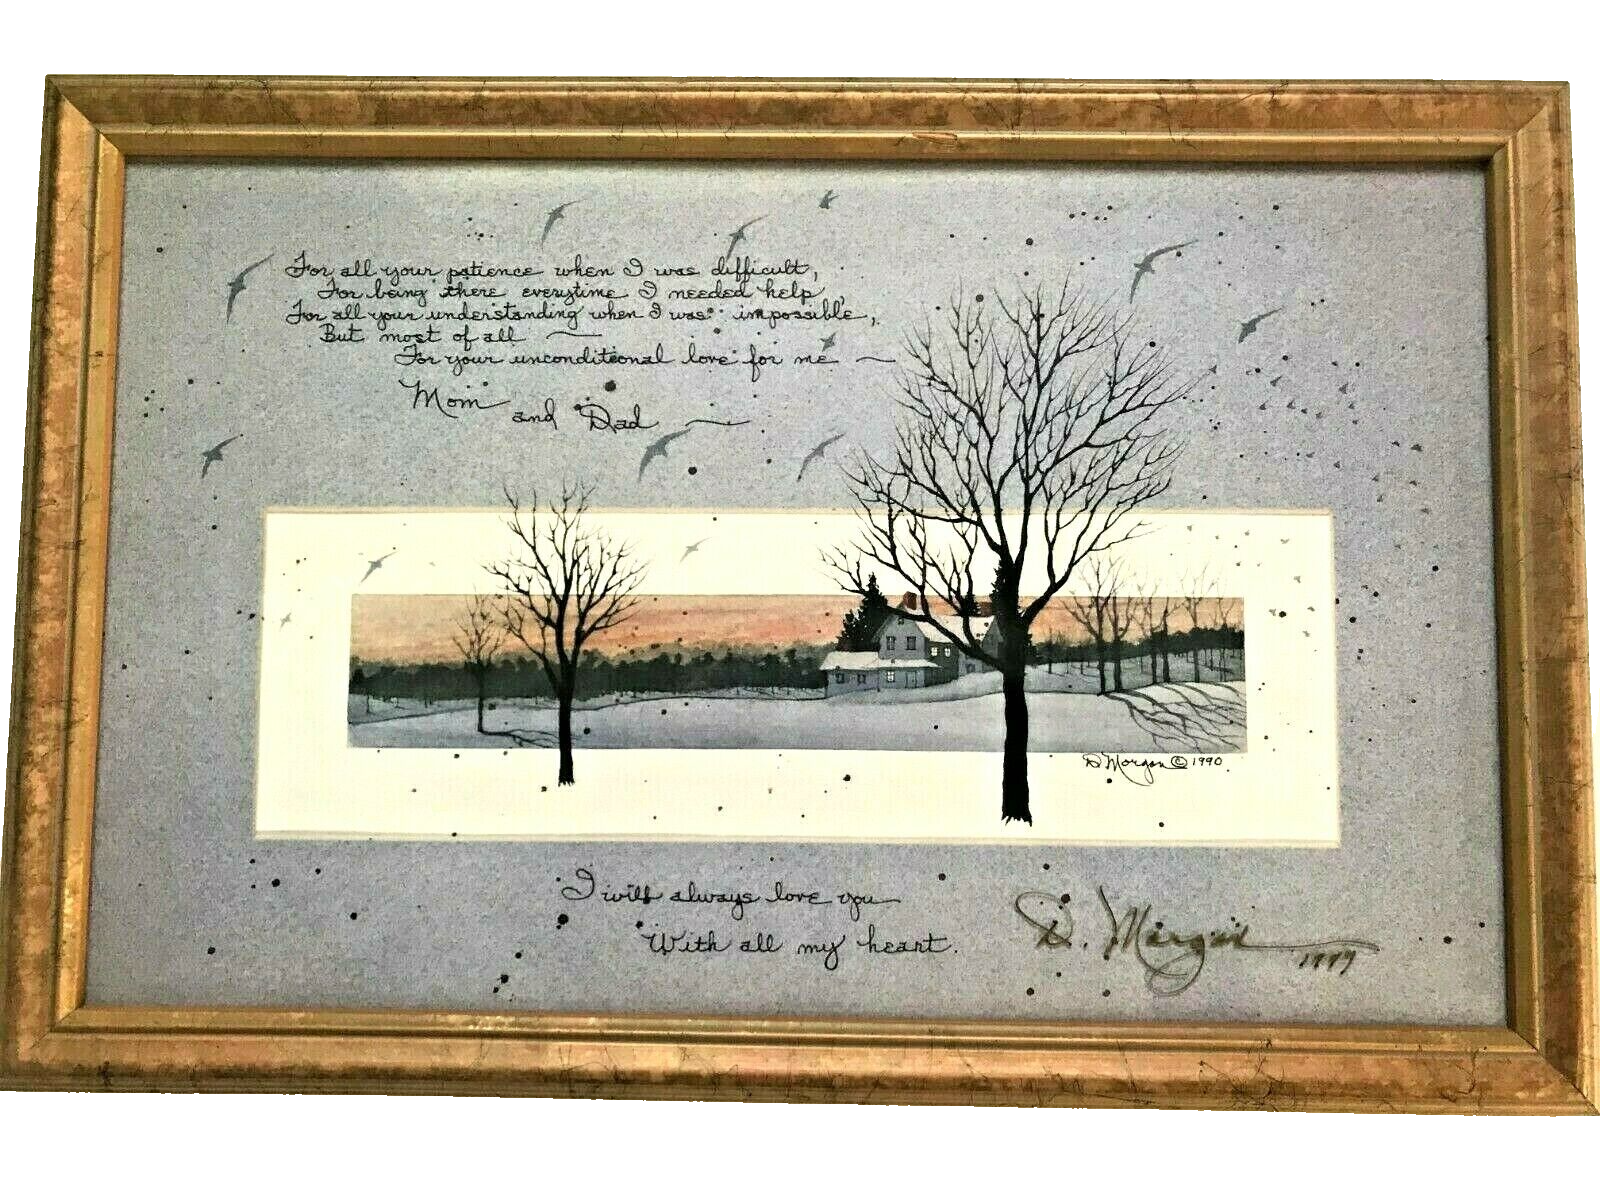 For all your patience when I was difficult,
For being there everytime I needed help,
For all your understanding when I was impossible,
But most of all —
For your unconditional love for me —
Mom and Dad —
D Morgan © 1990
I will always love you
With all my heart.
D. Morgan
1999